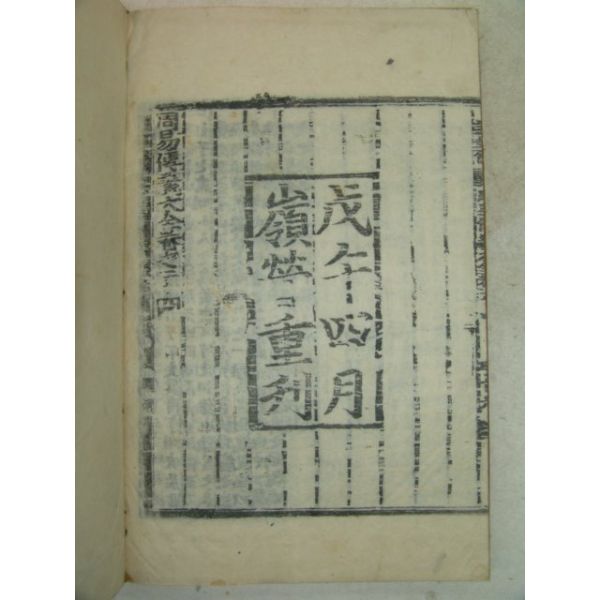 戊午四月
嶺營重刊
周易傳義大全卷之二十四